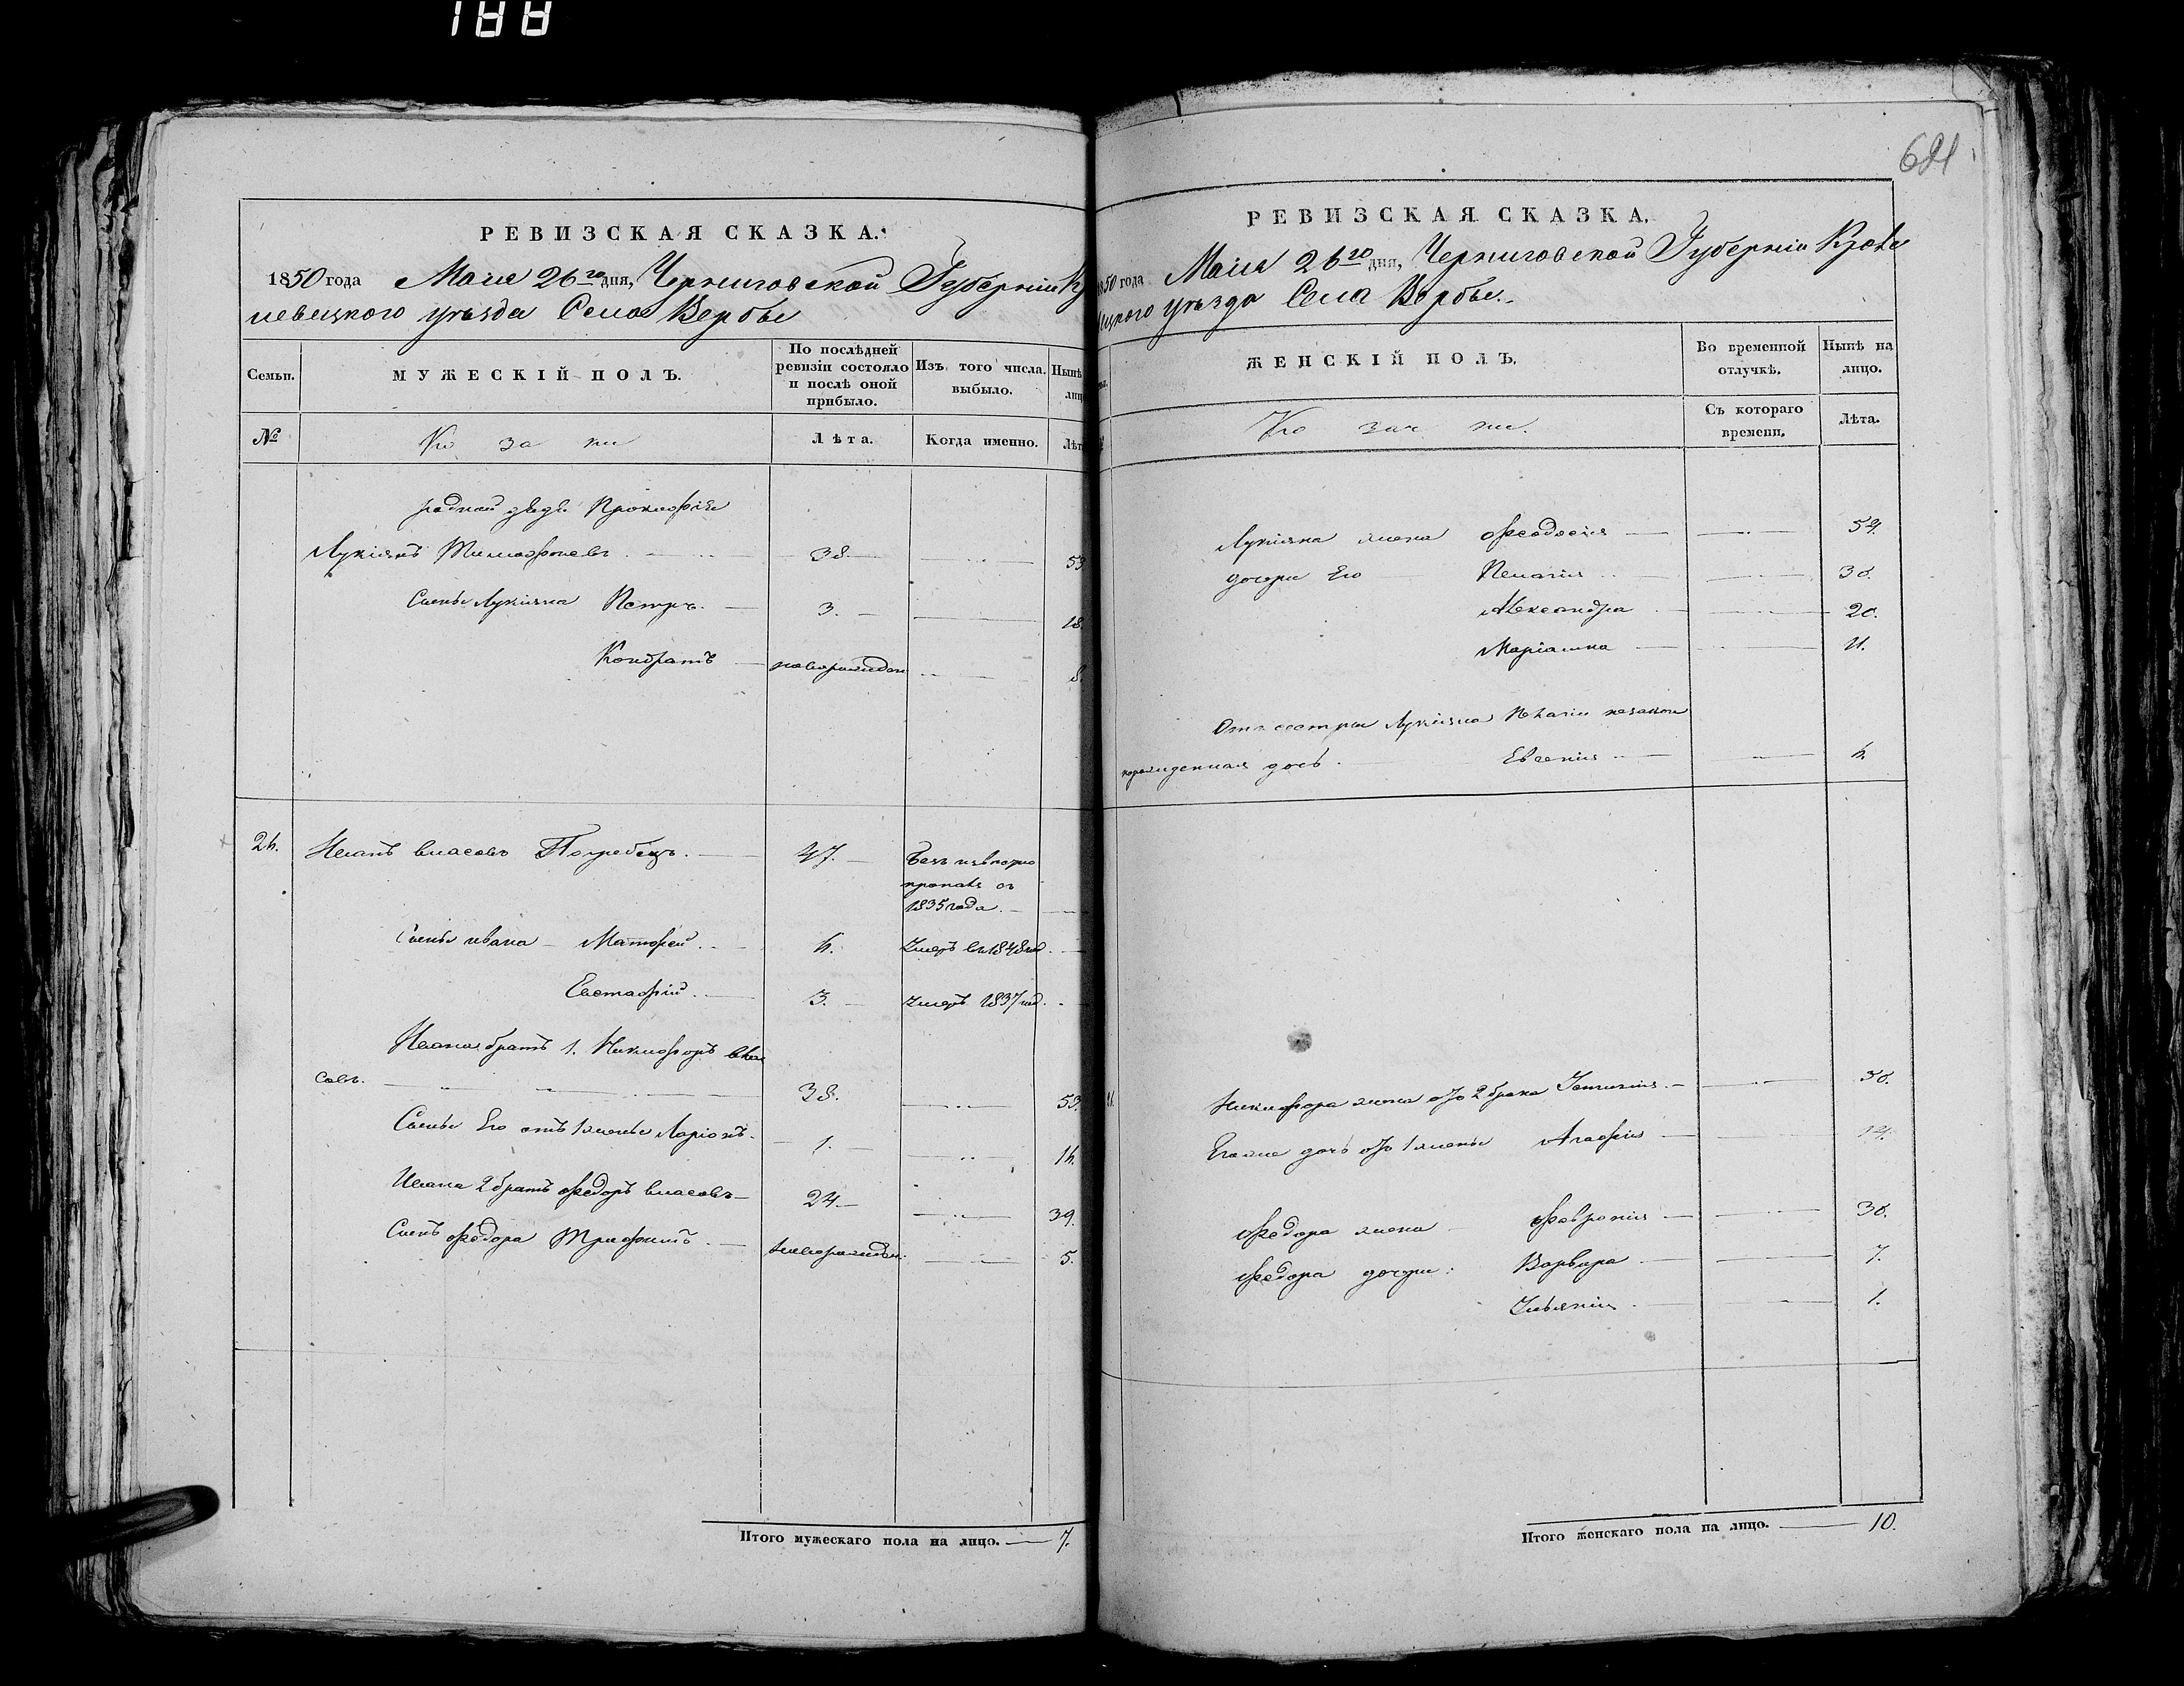 188
681
РЕВИЗСКАЯ СКАЗКА.
1850 года Маія 26го дня, Черниговской Губерніи К
левецкого уезда Села Вербы
Семьи.
МУЖЕСКІЙ ПОЛЪ.
По послѣдней ревизіи состояло и послѣ оной прибыло.
Изъ того числа выбыло.
Нынѣ
лиц
№
Ко за ки
Лѣта.
Когда именно.
Лѣт
родной дядя Прокофія
Лукіянъ Тимофеевъ 38. 53
Сыны Лукіяна Петръ. 3. 18.
Кондратъ новорожден 8.
26. Иванъ Власовъ 47. Безъ
пропалъ съ
1835 года.
Сыны Ивана Матфей. 6. Умеръ въ 1848 год.
Евстафій. 3. Умеръ 1837 год.
Ивана братъ 1. Никифоръ Вла
совъ. 38. 53.
Сынъ Его отъ 1 жены Ларіонъ. 1. 16.
Ивана 2 братъ Федоръ Власовъ 24. 39.
Сынъ Федора Трифонъ. новорожден. 5.
Итого мужескаго пола на лицо. 7.
РЕВИЗСКАЯ СКАЗКА.
1850 года Маія 26го дня, Черниговской Губерніи Кроле
вецкого уезда Села Вербы.
ЖЕНСКІЙ ПОЛЪ.
Во временной отлучкѣ.
Нынѣ на лицо.
Ко зач ки.
Съ котораго времени.
Лѣта.
Лукіяна жена Феодосія 54.
дочери Его Пелагія 30.
Александра 20.
Маріанна 11.
Отъ сестры Лукіяна Пелагіи незакон
норожденная дочь. Евгенія 6.
Никифора жена отъ 2 брака 30.
Его же дочь отъ 1 жены Агафія 14.
Федора жена Февронія 30.
Федора дочери: Варвара 7.
Ульянія 1.
Итого женскаго пола на лицо. 10.